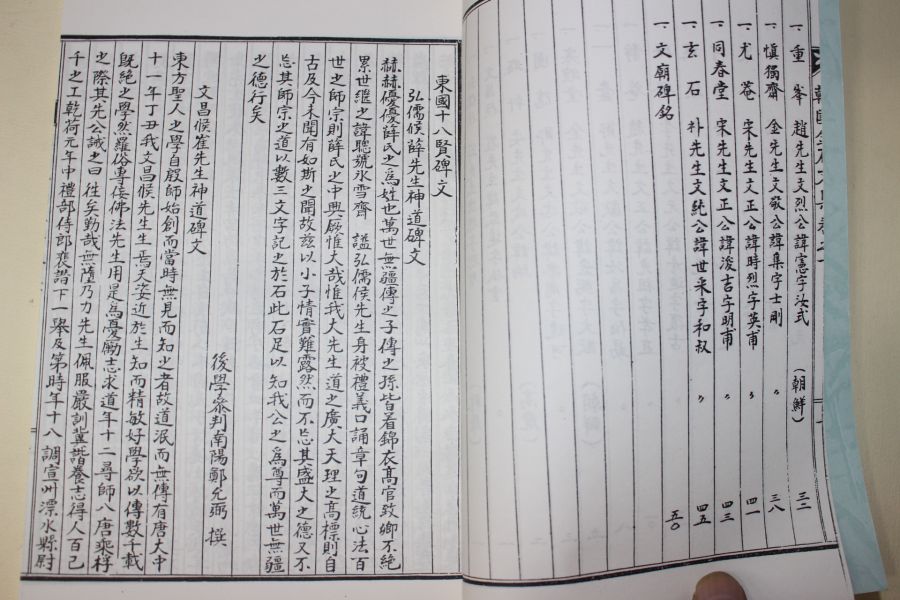 一 重峯 趙先生文烈公諱憲字汝式 (朝鮮) 三二
一 愼獨齋 金先生文敬公諱集字士剛 〃 三八
一 尤菴 宋先生文正公諱時烈字英甫 〃 四一
一 同春堂 宋先生文正公諱浚吉字明甫 〃 四三
一 玄石 朴先生文純公諱世采字和叔 〃 四五
一 文廟碑銘 五〇
東國十八賢碑文
弘儒候薛先生神道碑文
赫赫優優薛氏之爲姓也萬世無疆傳之子傳之孫皆着錦衣高官致卿不絶
累世継之諱聰號氷雪齋 謚弘儒侯先生身被禮義口誦章句道統心法百
世之師宗則薛氏之中興厥惟大哉惟我大先生道之廣大天理之高標則自
古及今未聞有如斯之聞故玆以小子情實難露然而不忘其盛大之德又不
忘其師宗之道以數三文字記之於石此石足以知我公之爲尊而萬世無疆
之德行矣
後學叅判南陽鄭允弼 撰
文昌候崔先生神道碑文
東方聖人之學自殷師始創而當時無見而知之者故道泯而無傳有唐大中
十一年丁丑我文昌候先生生焉天姿近於生知而精敏好學欲以傳數千載
旣絶之學然羅俗專倭佛法先生用是爲憂勵志求道年十二尋師入唐乘桴
之際其先公誡之曰 往矣勤哉無隳乃力先生佩服嚴訓冀諧養志得人百己
千之工乾荷元年中禮部侍郎裵諧下一擧及第時年十八 調宣州漂水縣尉